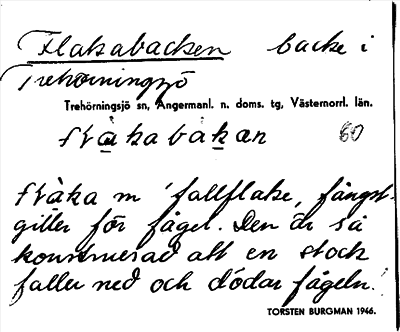 Flakabacken backe i
Trehörningsjö
Trehörningsjö sn, Ångermanl. n. doms. tg, Västernorrl. län.
flạ̀kabàkan 60
flàka m 'fallflake, fångst-
giller för fågel. Den är så
konstruerad att en stock
faller ned och dödar fågeln.'
TORSTEN BURGMAN 1946.